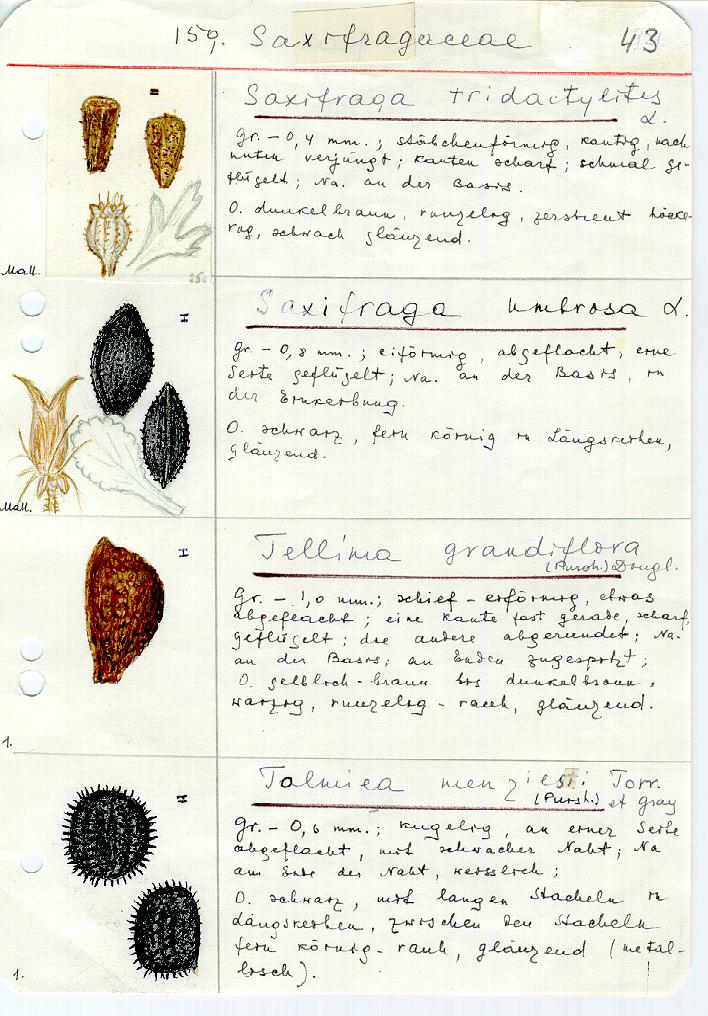 159. Saxifragaceae 43
Saxifraga tridactylites
L.
Gr. - 0,4 mm.; stäbchenförmig, kantig, nach
unten verjüngt; Kanten scharf; schmal ge-
flügelt; Na. an der Basis.
O. dunkelbraun, runzelig, zerstreut höcke-
rig, schwach glänzend.
Mall.
Saxifraga umbrosa L.
Gr. - 0,8 mm.; eiförmig, abgeflacht, eine
Seite geflügelt; Na. an der Basis, in
der Einkerbung.
O. schwarz, fein körnig in Längsreihen,
glänzend.
Mall.
Tellima grandiflora
(Pursh.) Dougl.
Gr. - 1,0 mm.; schief-eiförmig, etwas
abgeflacht; eine Kante fast gerade, scharf,
geflügelt; die andere abgerundet; Na.
an der Basis; an Enden zugespitzt;
O. gelblich-braun bis dunkelbraun,
warzig, runzelig-rauh, glänzend.
1.
Tolmiea menziesii Torr.
(Pursh.) et Gray
Gr. - 0,6 mm.; kugelig, an einer Seite
abgeflacht, mit schwacher Naht; Na
am Ende der Naht, weisslich;
O. schwarz, mit langen Stacheln in
Längsreihen, zwischen den Stacheln
fein körnig-rauh, glänzend (metal-
lisch).
1.